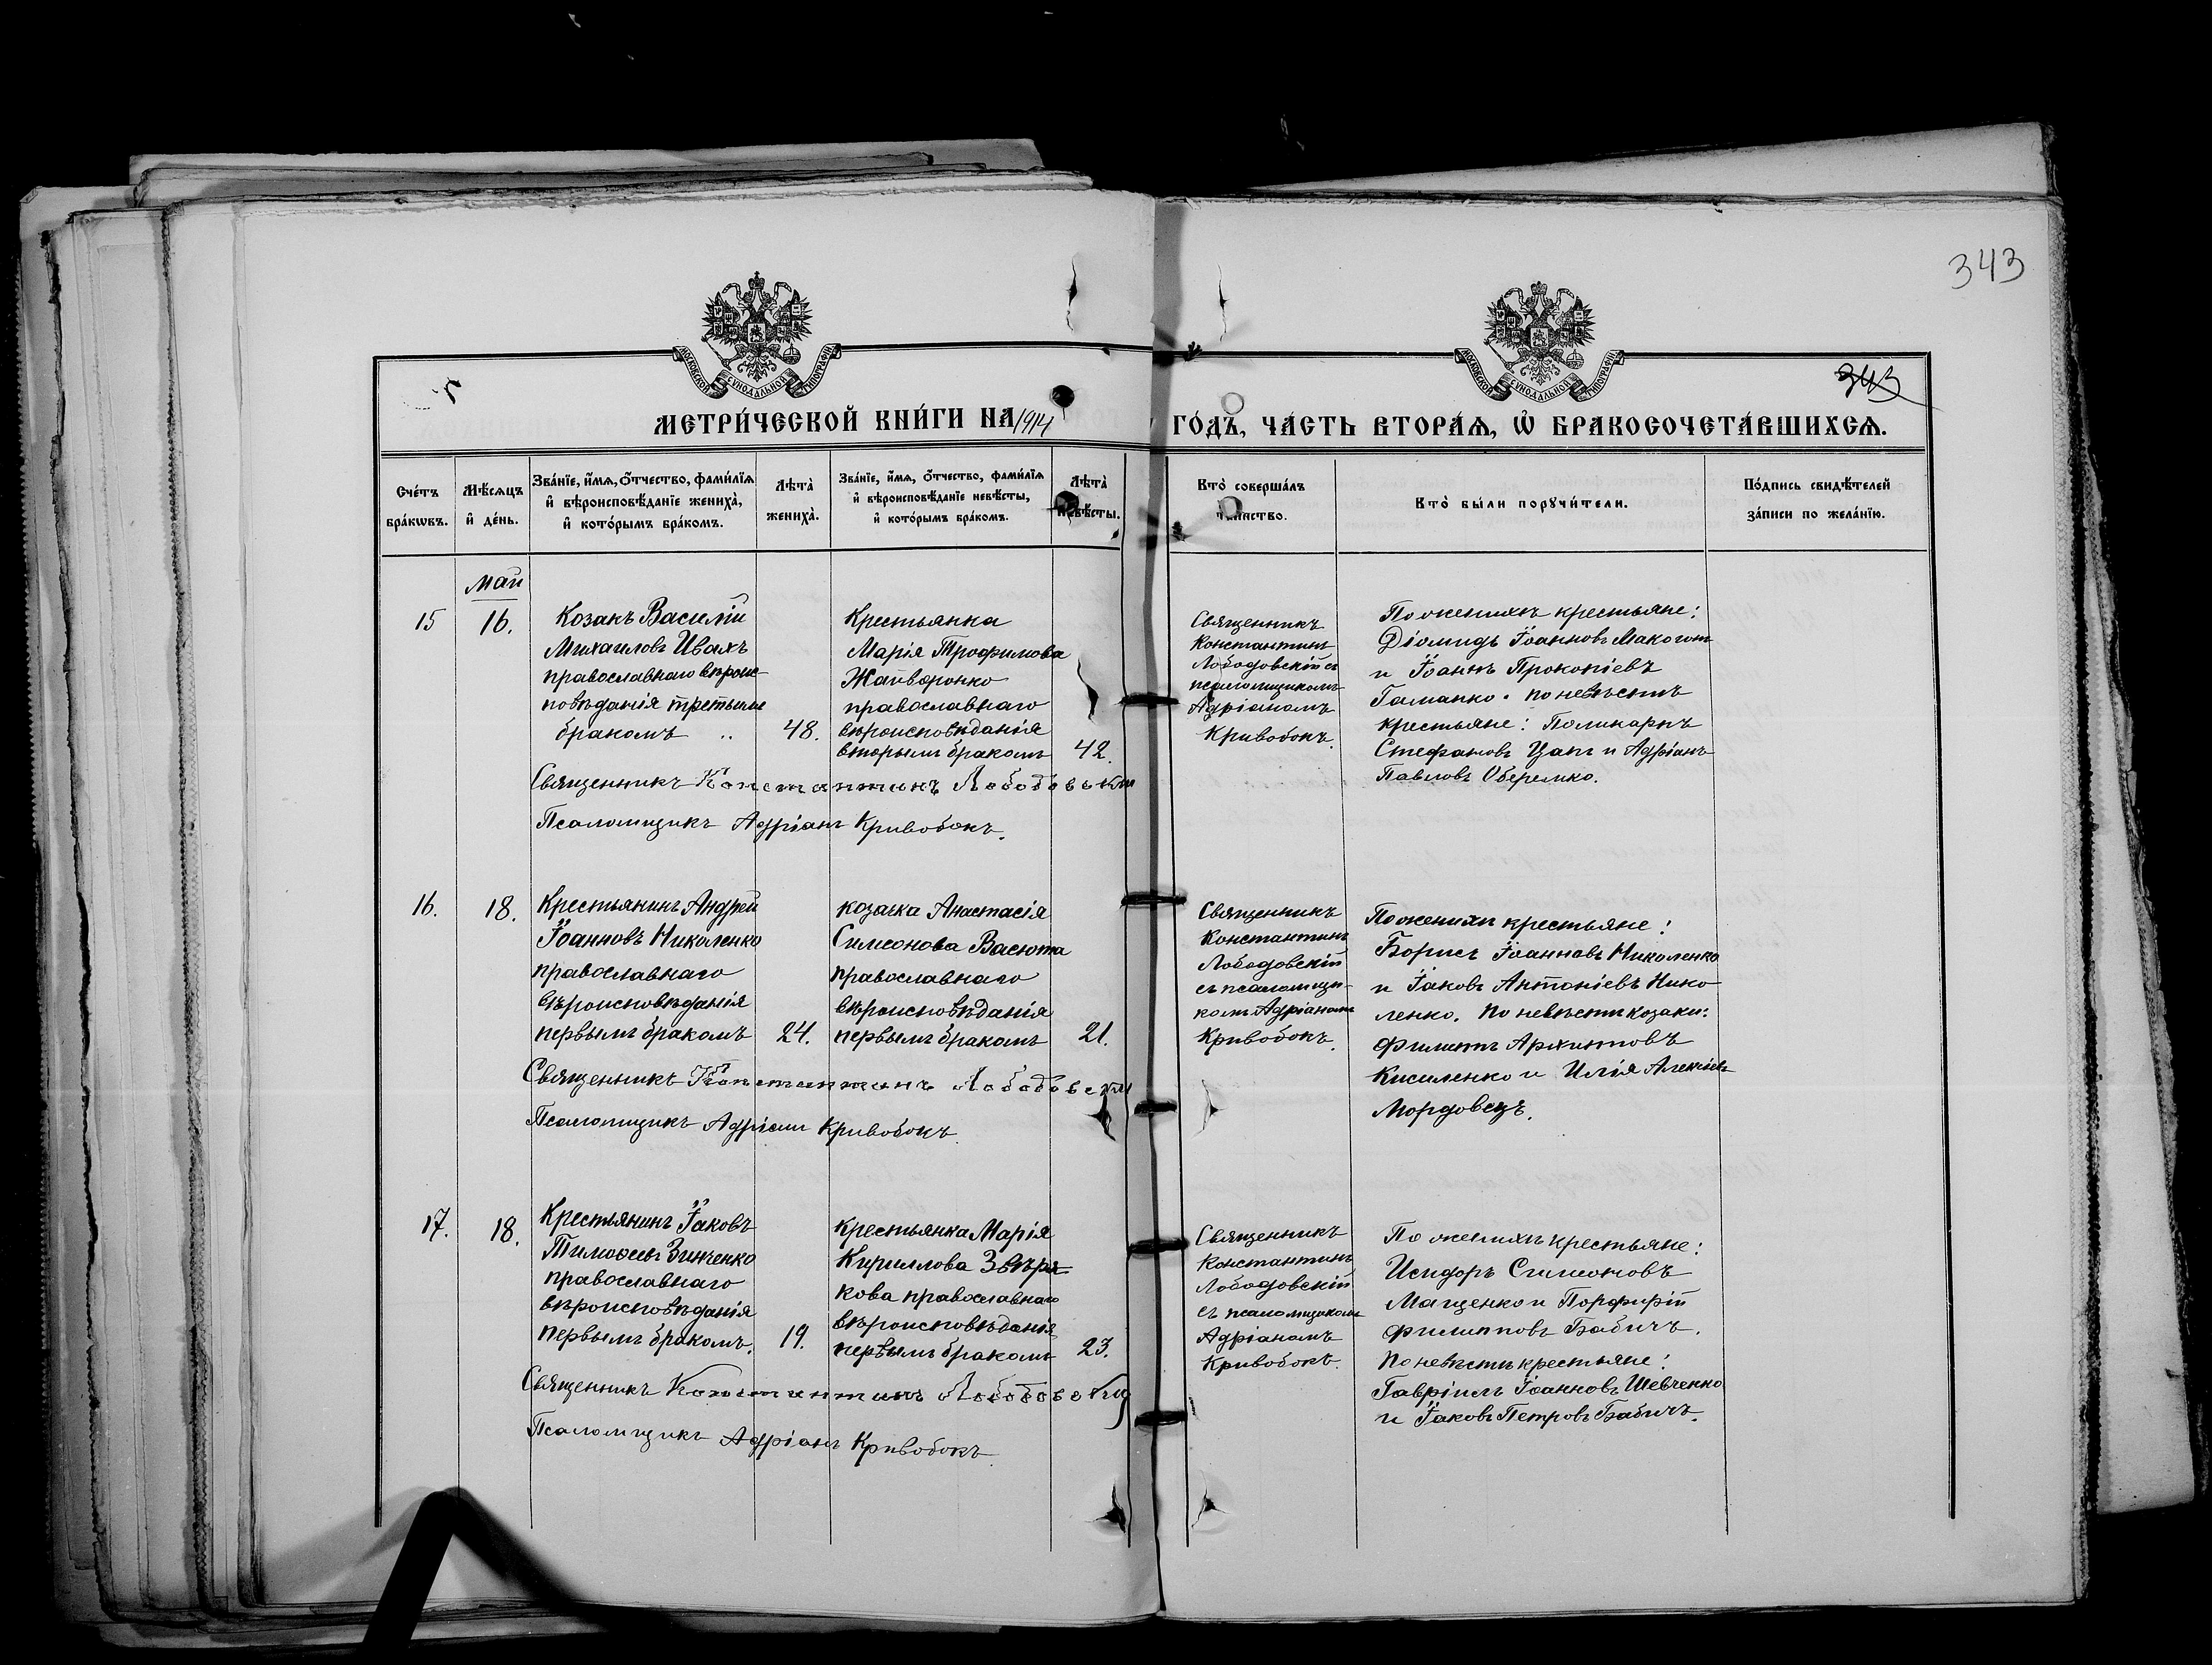 343
МОСКОВСКОЙ СѴНОДАЛЬНОЙ ТИПОГРАФІИ
МОСКОВСКОЙ СѴНОДАЛЬНОЙ ТИПОГРАФІИ
343
МЕТРИ́ЧЕСКОЙ КНИ́ГИ НА 1914 ГО́ДЪ, ЧА́СТЬ ВТОРА́Ѧ, Ѡ҆ БРАКОСОЧЕТА́ВШИХСѦ.
Сче́тъ бра́кѡвъ.
Мѣ́сѧцъ и҆ де́нь.
Зва́нїе, и҆́мѧ, о҆́тчество, фами́лїѧ и҆ вѣроисповѣ́данїе жениха̀, и҆ кото́рымъ бра́комъ.
Лѣта̀ жениха̀.
Зва́нїе, и҆́мѧ, о҆́тчество, фами́лїѧ и҆ вѣроисповѣ́данїе невѣ́сты, и҆ кото́рымъ бра́комъ.
Лѣта̀ невѣ́сты.
Кто̀ соверша́лъ таинство.
Кто̀ бы́ли порꙋчи́тели.
По́дпись свидѣ́телей за́писи по жела́нїю.
Май
15
16.
Козакъ Василій
Михаиловъ Ивахъ
православнаго вѣроис-
повѣданія третьимъ
бракомъ
48.
Крестьянка
Марія Трофимова
Жайворонко
православнаго
вѣроисповѣданія
вторымъ бракомъ
42.
Священникъ
Константинъ
Лободовскій съ
псаломщикомъ
Адріаномъ
Кривобокъ.
По женихѣ крестьяне:
Діомидъ Іоанновъ Макогонъ
и Іоаннъ Прокопіевъ
Гаманко. по невѣстѣ
крестьяне: Поликарпъ
Стефановъ Цапъ и Адріанъ
Павловъ Оберемко.
Священникъ Константинъ Лободовскій
Псаломщикъ Адріанъ Кривобокъ.
16.
18.
Крестьянинъ Андрей
Іоанновъ Николенко
православнаго
вѣроисповѣданія
первымъ бракомъ
24.
козачка Анастасія
Симеонова Васюта
православнаго
вѣроисповѣданія
первымъ бракомъ
21.
Священникъ
Константинъ
Лободовскій
съ псаломщи-
комъ Адріаномъ
Кривобокъ.
По женихѣ крестьяне:
Борисъ Іоанновъ Николенко
и Іаковъ Антоніевъ Нико-
ленко. По невѣстѣ козаки:
Филиппъ Архиповъ
Кисиленко и Илія Алексіевъ
Мордовецъ.
Священникъ Константинъ Лободовскій
Псаломщикъ Адріанъ Кривобокъ.
17.
18.
Крестьянинъ Іаковъ
Тимоѳеевъ Зинченко
православнаго
вѣроисповѣданія
первымъ бракомъ.
19.
крестьянка Марія
Кириллова Звѣря-
кова православнаго
вѣроисповѣданія
первымъ бракомъ
23.
Священникъ
Константинъ
Лободовскій
съ псаломщикомъ
Адріаномъ
Кривобокъ.
По женихѣ крестьяне:
Исидоръ Симеоновъ
Мащенко и Порфирій
Филипповъ Бабичъ.
По невѣстѣ крестьяне:
Гавріилъ Іоанновъ Шевченко
и Іаковъ Петровъ Бабичъ.
Священникъ Константинъ Лободовскій
Псаломщикъ Адріанъ Кривобокъ.